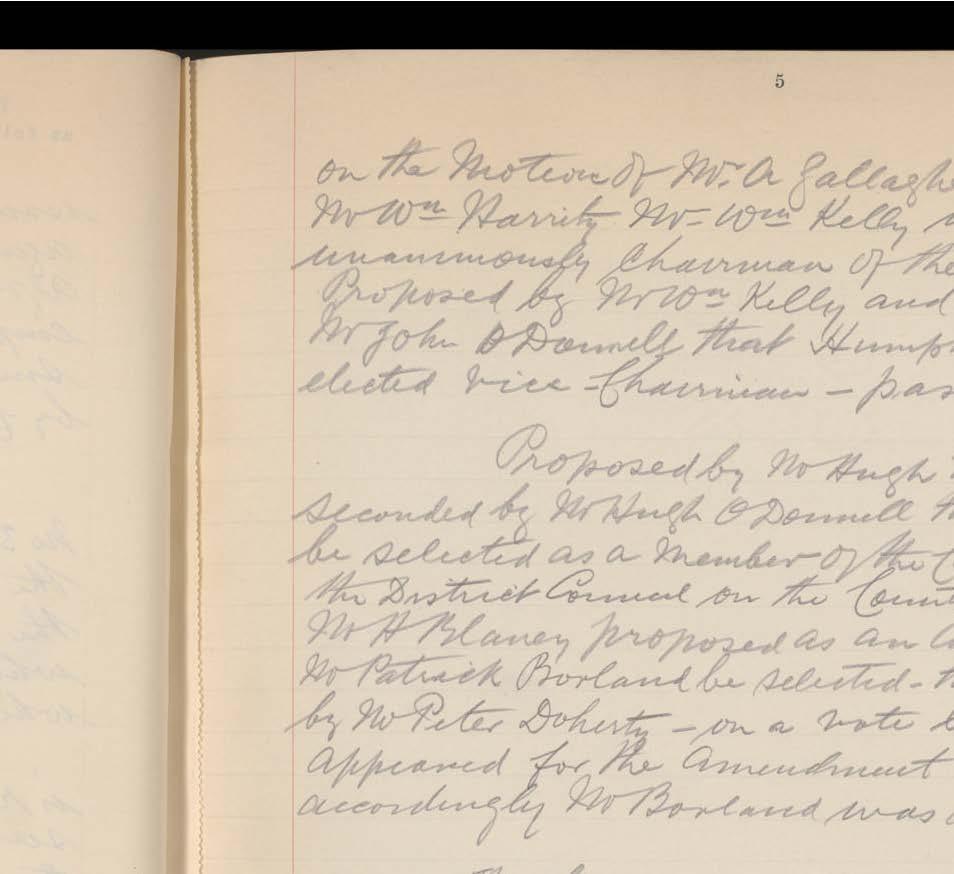 5
on the Motion of Mr. A Gallaghe
Mr Wm Harrity Mr Wm Kelly
unanimously Chairman of the
Proposed by Mr Wm Kelly and
Mr John O Donnell that Humph
elected Vice-Chairman - pas
Proposed by Mr Hugh
seconded by Mr Hugh O Donnell th
be selected as a member of the C
the District Council on the Count
Mr H Blaney proposed as an
Mr Patrick Borland be selected - th
by Mr Peter Doherty - on a vote
appeared for the Amendment
accordingly Mr Borland was